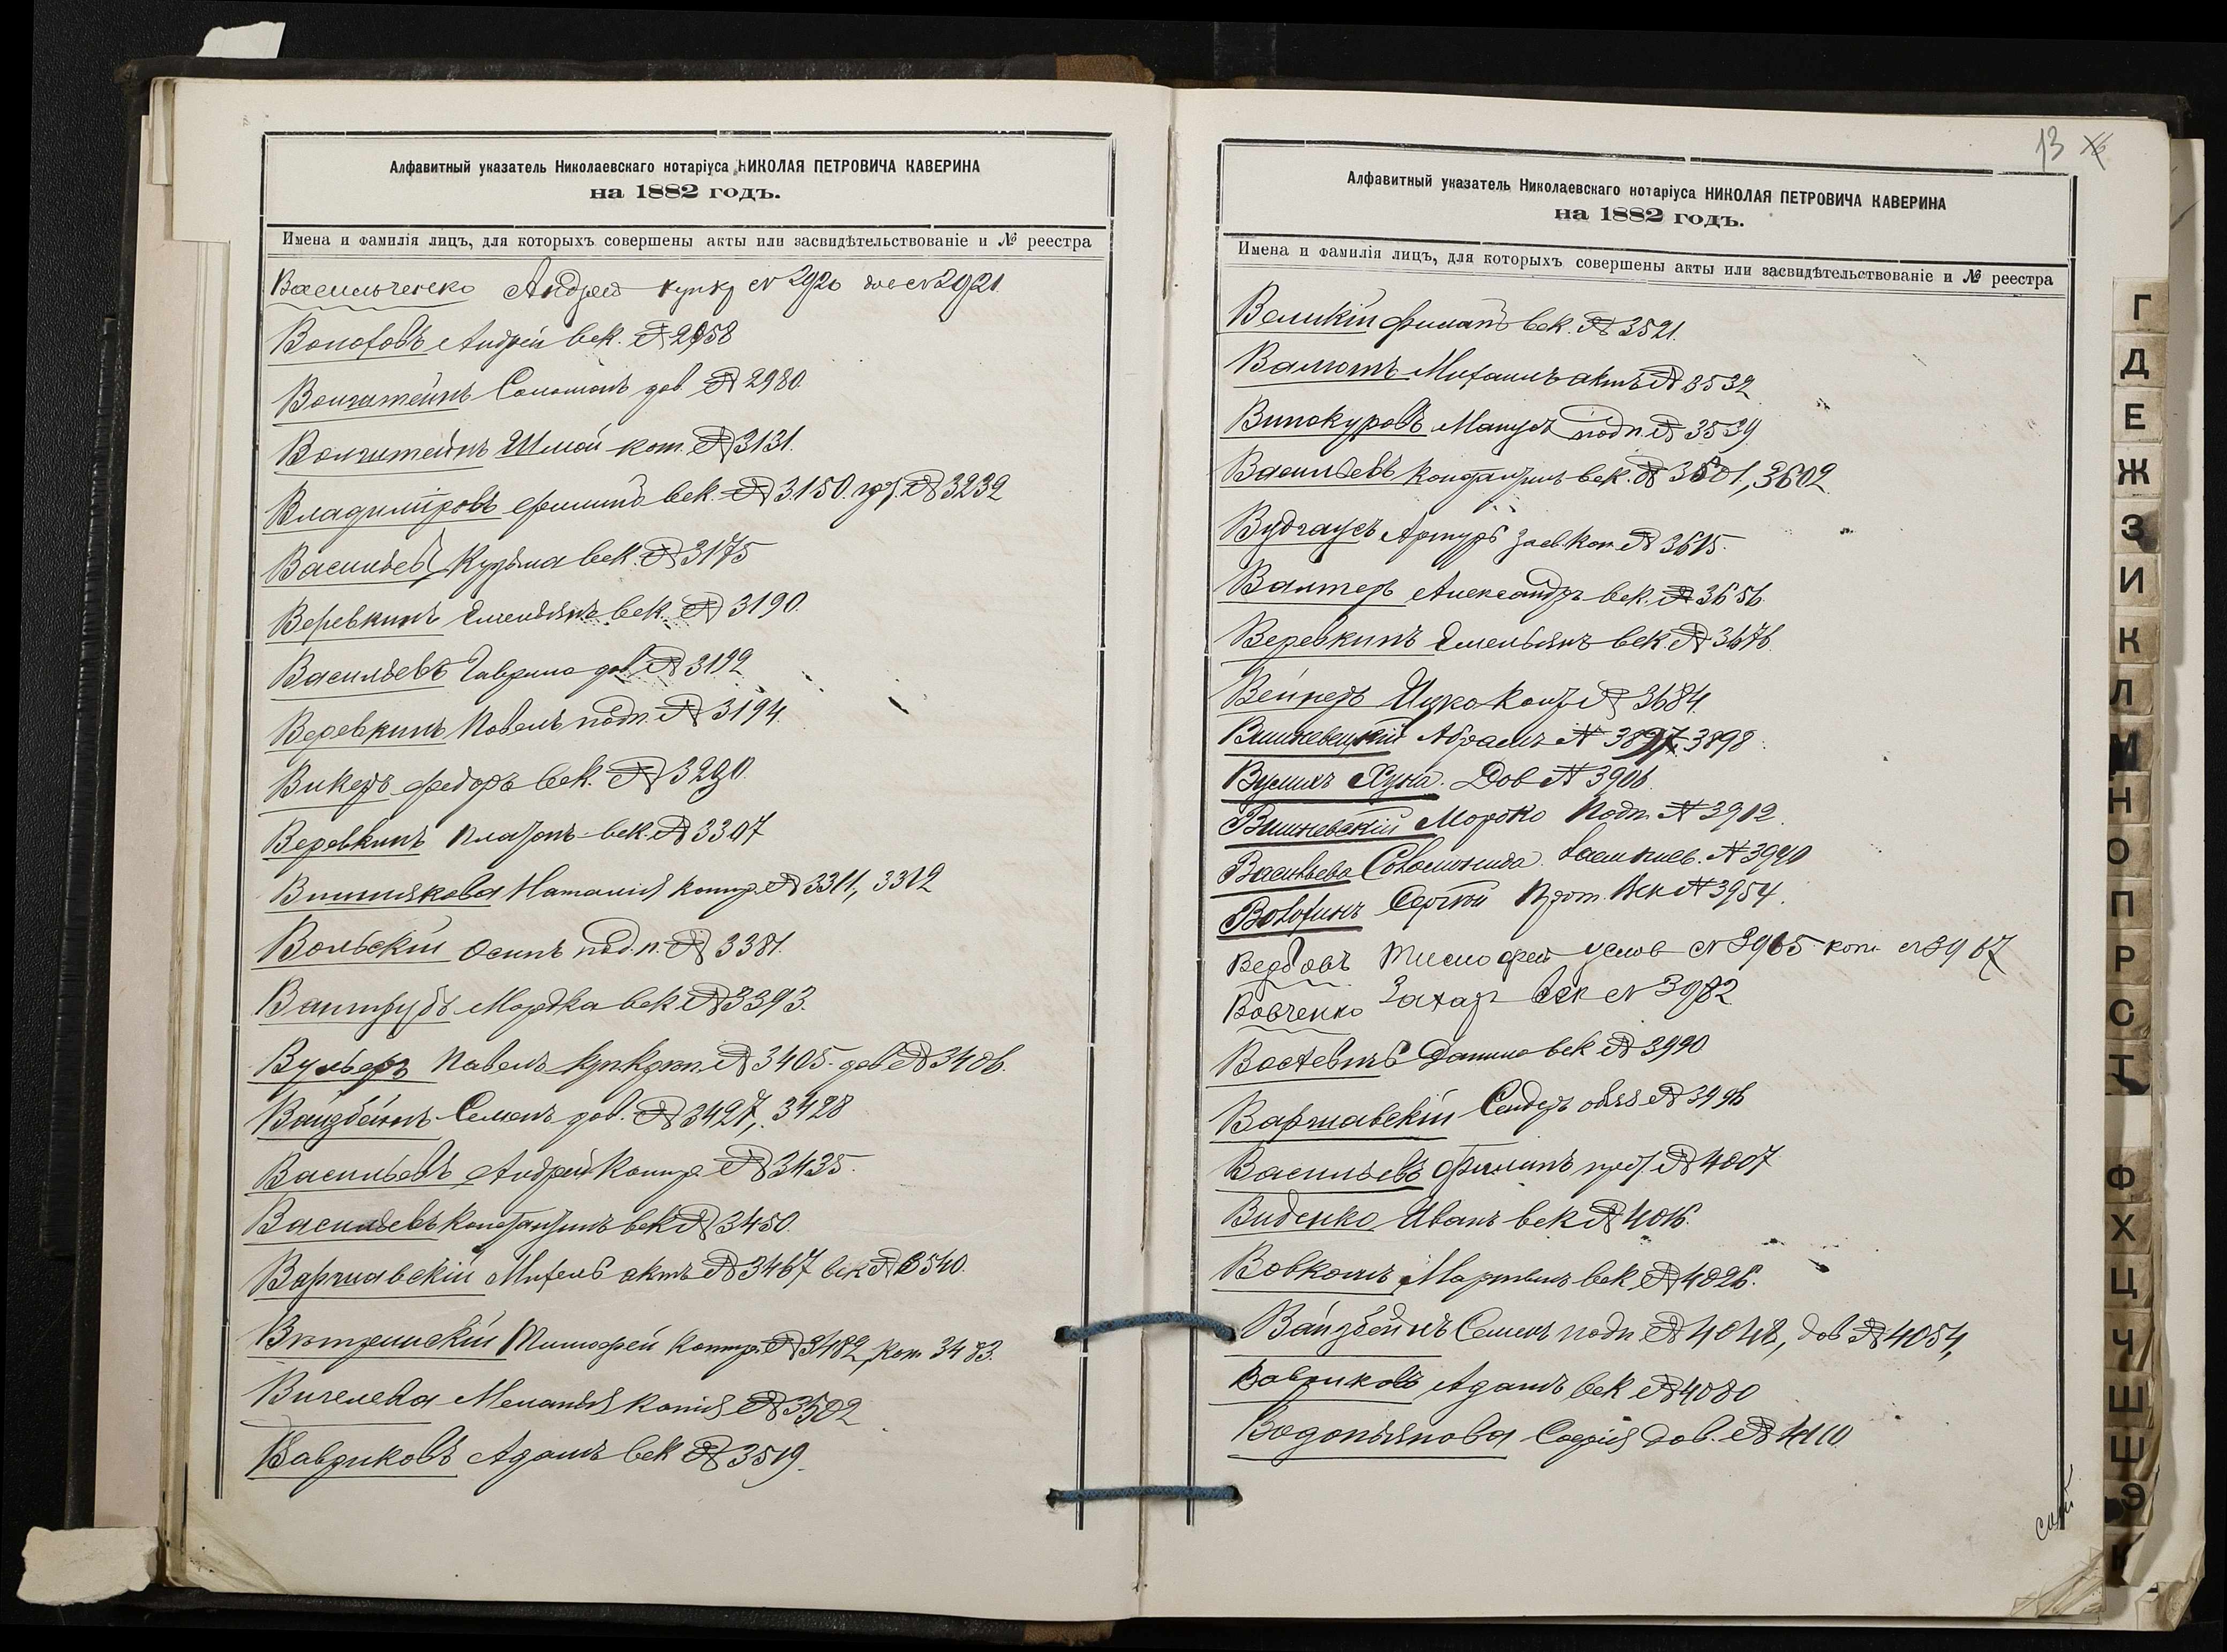 Алфавитный указатель Николаевскаго нотаріуса НИКОЛАЯ ПЕТРОВИЧА КАВЕРИНА
на 1882 годъ.
Имена и фамилія лицъ, для которыхъ совершены акты или засвидѣтельствованіе и № реестра
Васильченско Андрей купкр № 2920 № 2921
Волоховъ Андрей век. № 2958
Вонштейнъ Соломонъ дов № 2980.
Вонштейнъ Шмой коп. № 3131.
Владиміровъ Филипъ век. № 3150. № 3232
Васильевъ Кузьма век. № 3175
Веревкинъ Емельянъ век. № 3190.
Васильевъ Гаврило дов. № 3192
Веревкинъ Павелъ подп. № 3194.
Викеръ Федоръ век. № 3290.
Веревкинъ Платонъ век. № 3307
Вишнякова Наталия контр № 3311, 3312
Вольскій Осипъ подп. № 3381.
Вантрубъ Мордка век № 3393.
Вульфъ Павелъ № 3405. дов № 3406.
Вайзбейнъ Семенъ дов. № 3427, 3428
Васильевъ Андрей контр № 3435.
Васильевъ Константинъ век № 3450.
Варшавскій Михель актъ № 3467 век № 3540.
Вътринскій Тимофей контр № 3482, коп 3483.
Вичелева Меланья копия № 3502
Вавриковъ Адамъ век № 3519.
13
Алфавитный указатель Николаевскаго нотаріуса НИКОЛАЯ ПЕТРОВИЧА КАВЕРИНА
на 1882 годъ.
Имена и фамилія лицъ, для которыхъ совершены акты или засвидѣтельствованіе и № реестра
Великій Филатъ век. № 3521.
Валютъ Михаилъ актъ № 3532
Винокуровъ Манусъ подп. № 3539
Васильевъ Константинъ век. № 3601, 3602
Вудгаусъ Артуръ засв. коп № 3615.
Валтеръ Александръ век. № 3656.
Веревкинъ Емельянъ век. № 3676.
Вейнеръ Ицко контр № 3684.
Вишневецкій Абрамъ № 3897, 3898
Вулихъ Хуна. Дов № 3906
Вишневскій Мордко Подп. № 3912.
Васильева № 3940
Волохинъ Сергѣй Прот. Век № 3954.
Вербовъ Тимофей услов № 3965 копи № 3967
Вовченко Захар век № 3982
Данило век № 3990
Варшавскій Сендеръ обяз № 3996
Васильевъ Филипъ № 4007
Виденко Иванъ век № 4016.
Вовкомъ Мартынъ век № 4026.
Вайзбейнъ Семенъ подп № 4048, дов № 4054,
Вавриковъ Адамъ век № 4080
Водопьянова Софія дов. № 4110.
Г
Д
Е
Ж
З
И
К
Л
М
Н
О
П
Р
С
Т
Ф
Х
Ц
Ч
Ш
Щ
Э